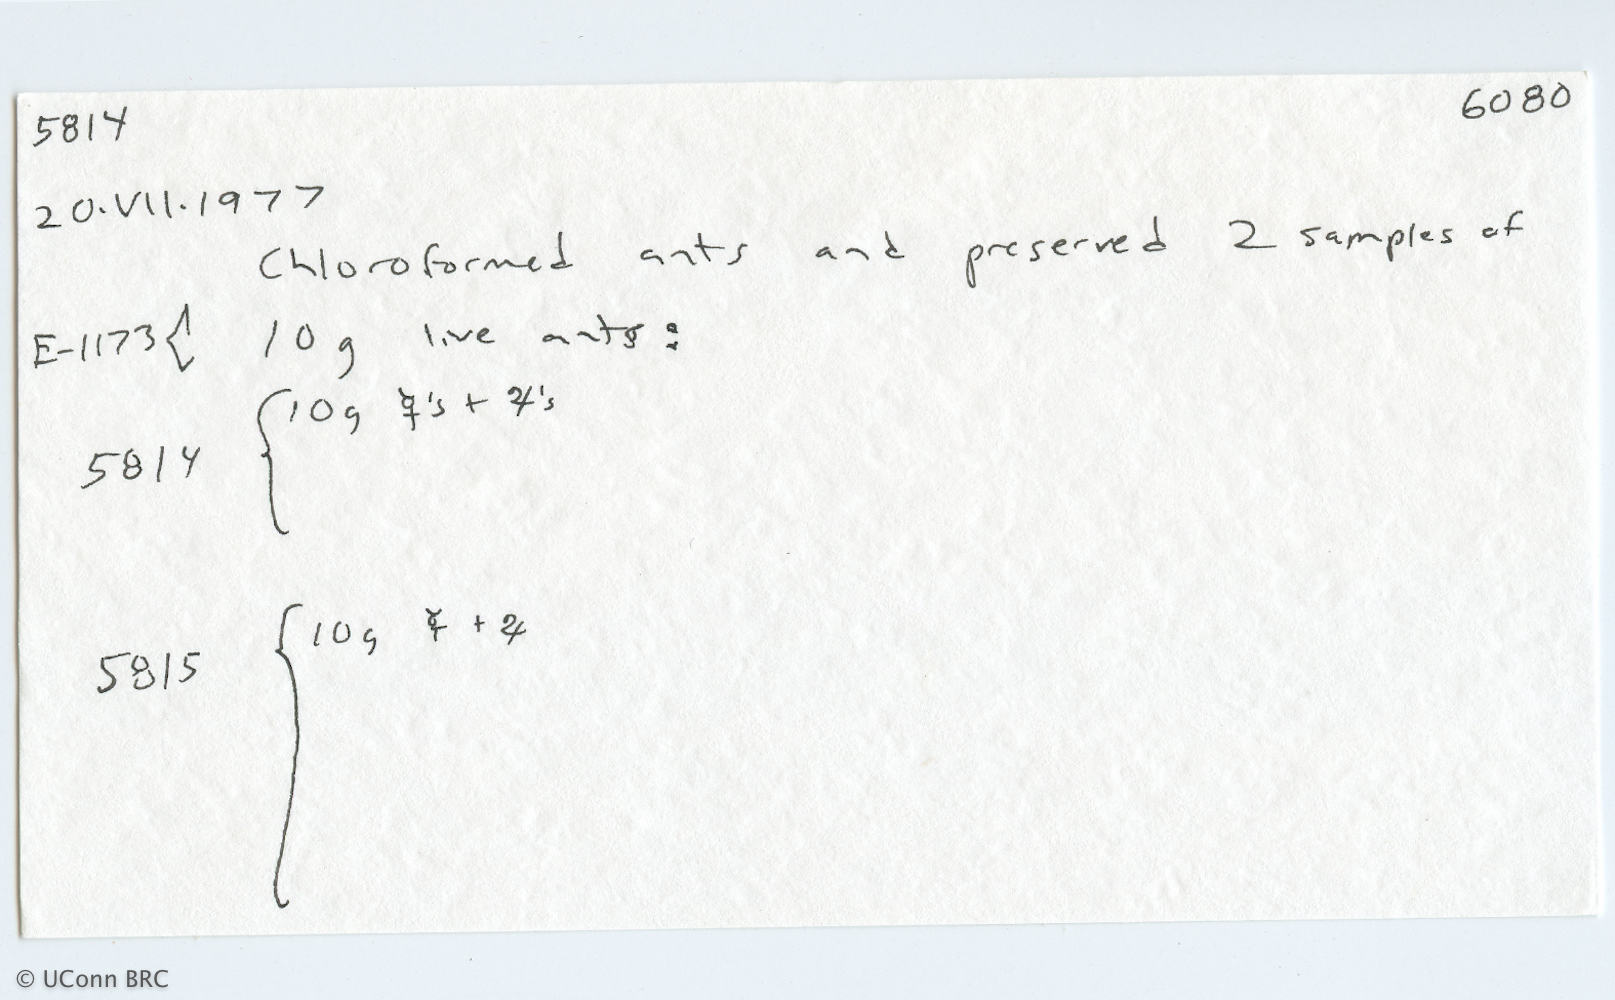 5814 6080
20.VII.1977
Chloroformed ants and preserved 2 samples of
E-1173{ 10g live ants:
5814 {10g ☿'s + ♃'s
5815 {10g ☿ + ♃
© UConn BRC